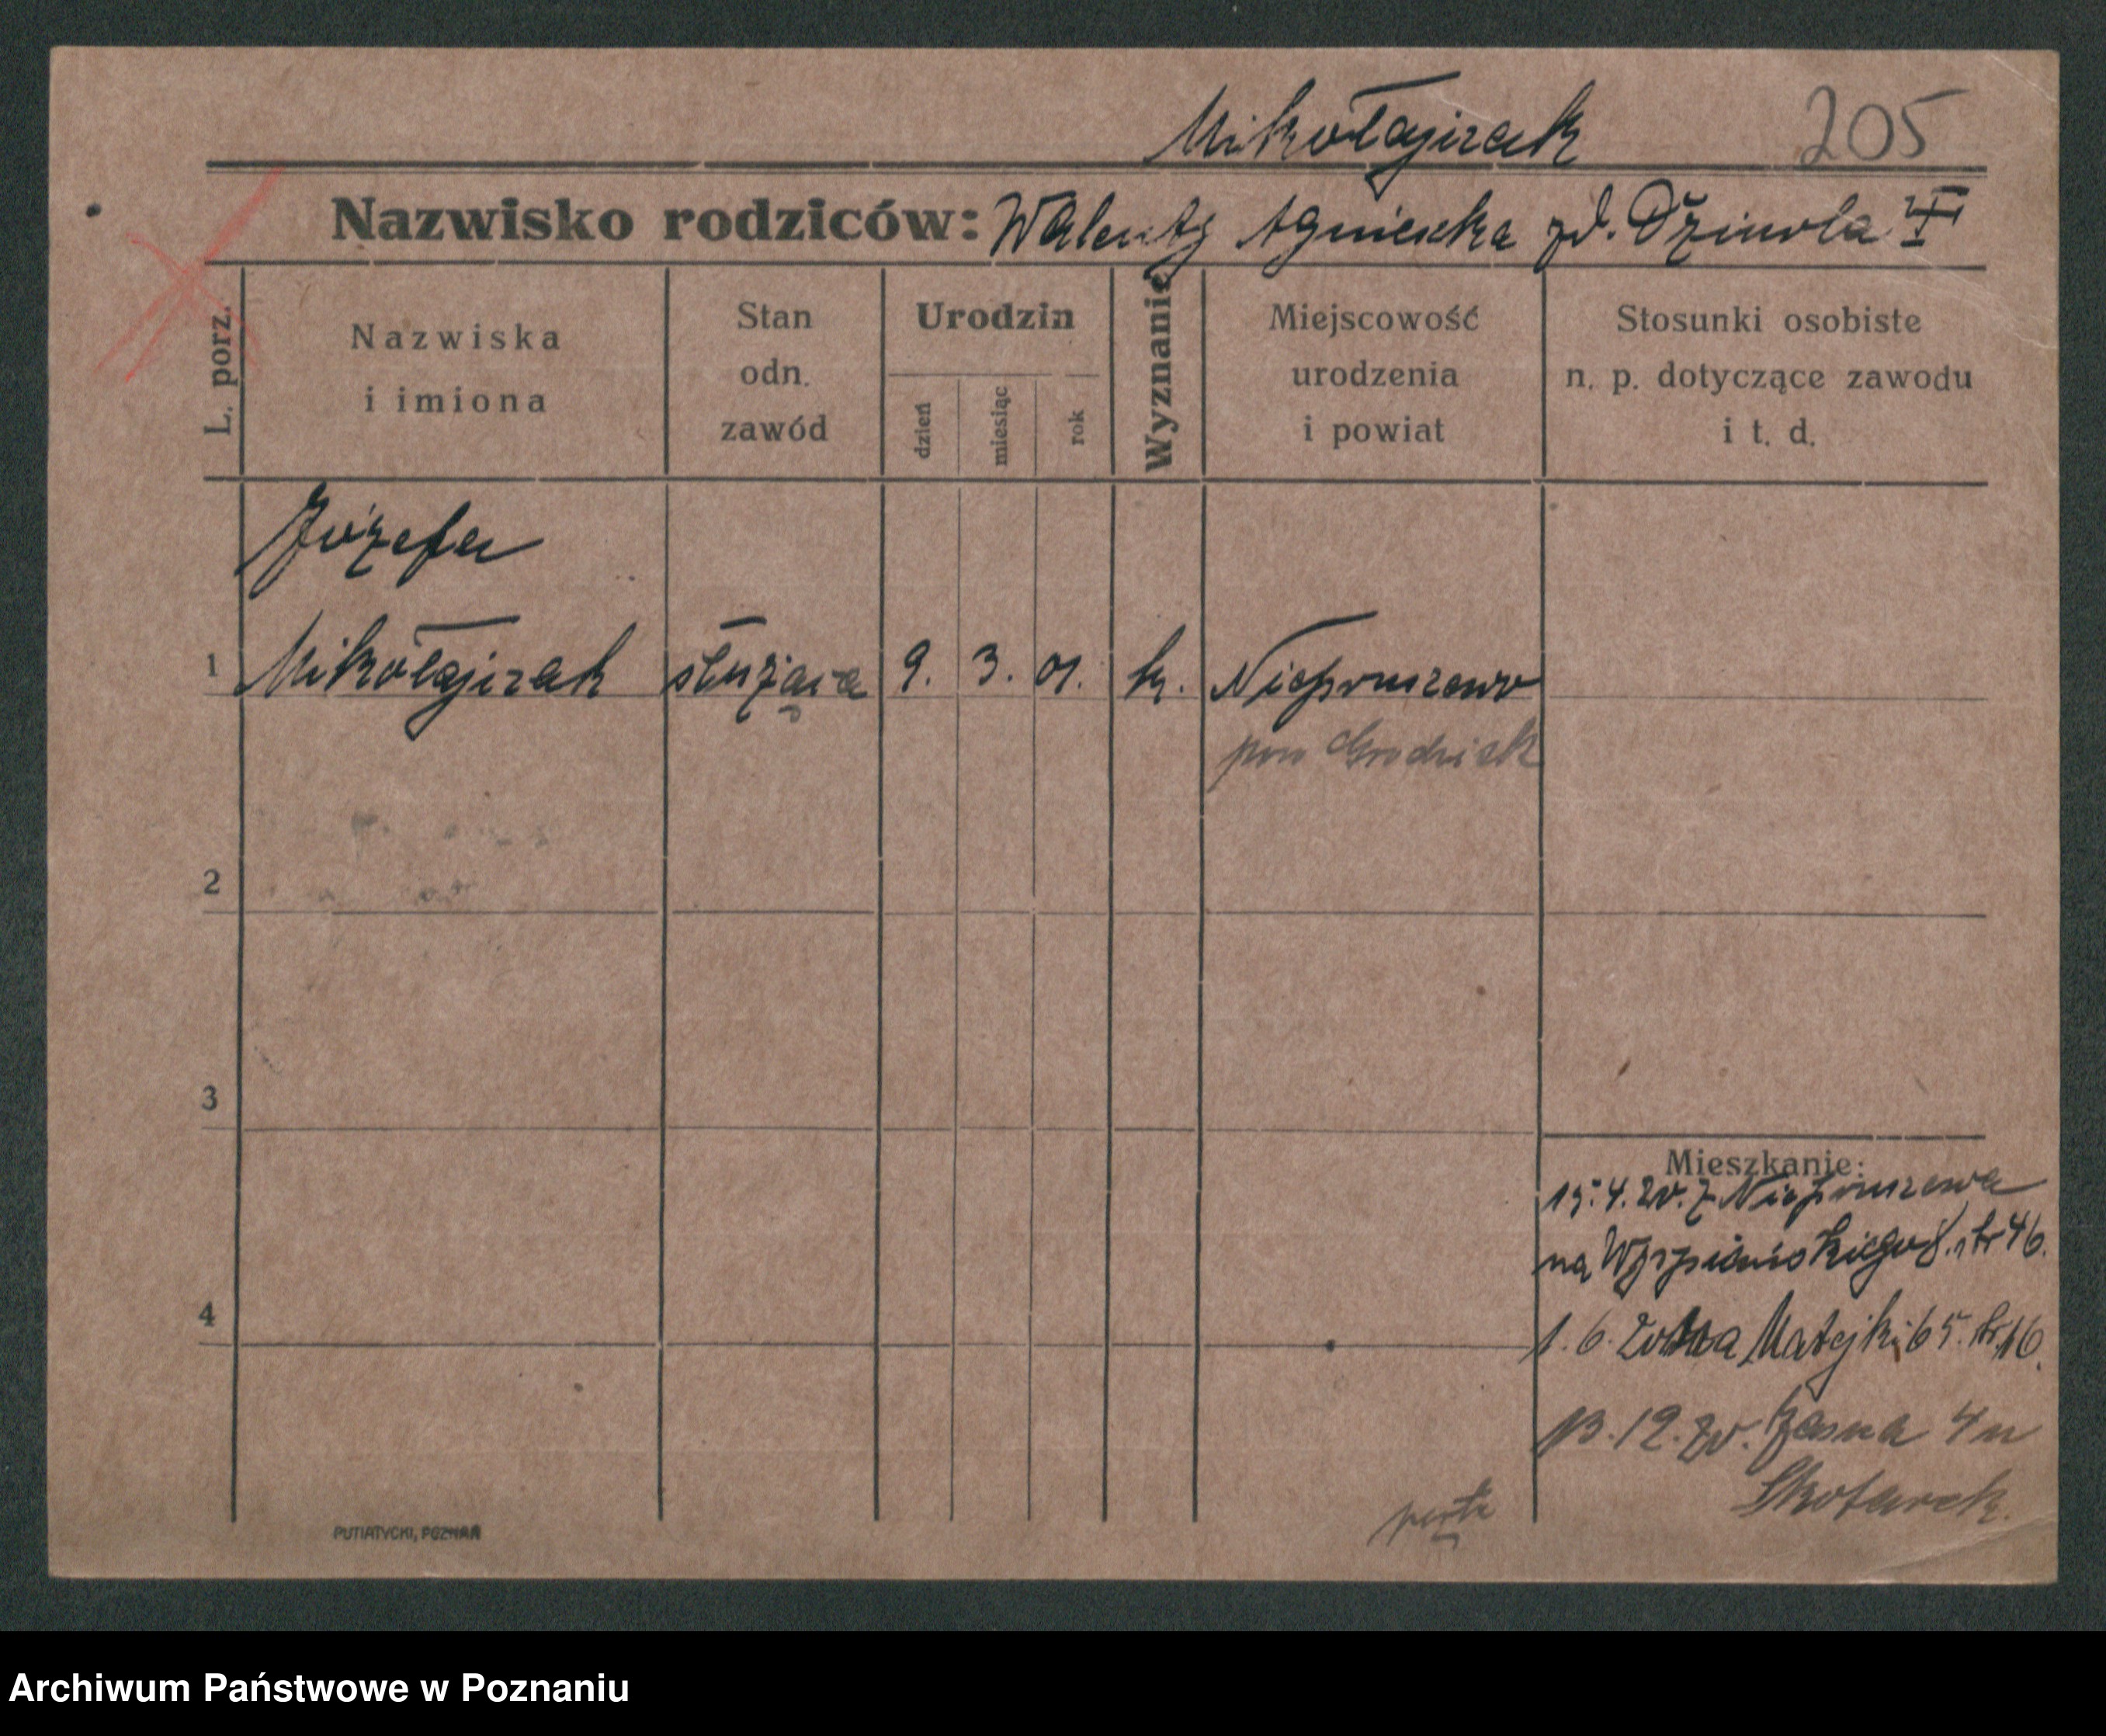 Mikołajczak 205
Nazwisko rodziców: Walenty Agnieszka zd.
L. porz.
Nazwiska i imiona
Stan odn. zawód
Urodzin
dzień
miesiąc
rok
Wyznanie
Miejscowość urodzenia i powiat
Stosunki osobiste n. p. dotyczące zawodu i t. d.
Józefa
1 Mikołajczak służąca 9. 3. 01. k. Niepruszewo
pow Grodzisk
2
3
Mieszkanie:
15.4.20. z Niepruszewa
na Wyspiańskiego
4
1.6.20 na Matejki 65.
13.12.20. Jasna 4 u
Skotarek.
PUTIATYCKI, POZNAŃ
Archiwum Państwowe w Poznaniu